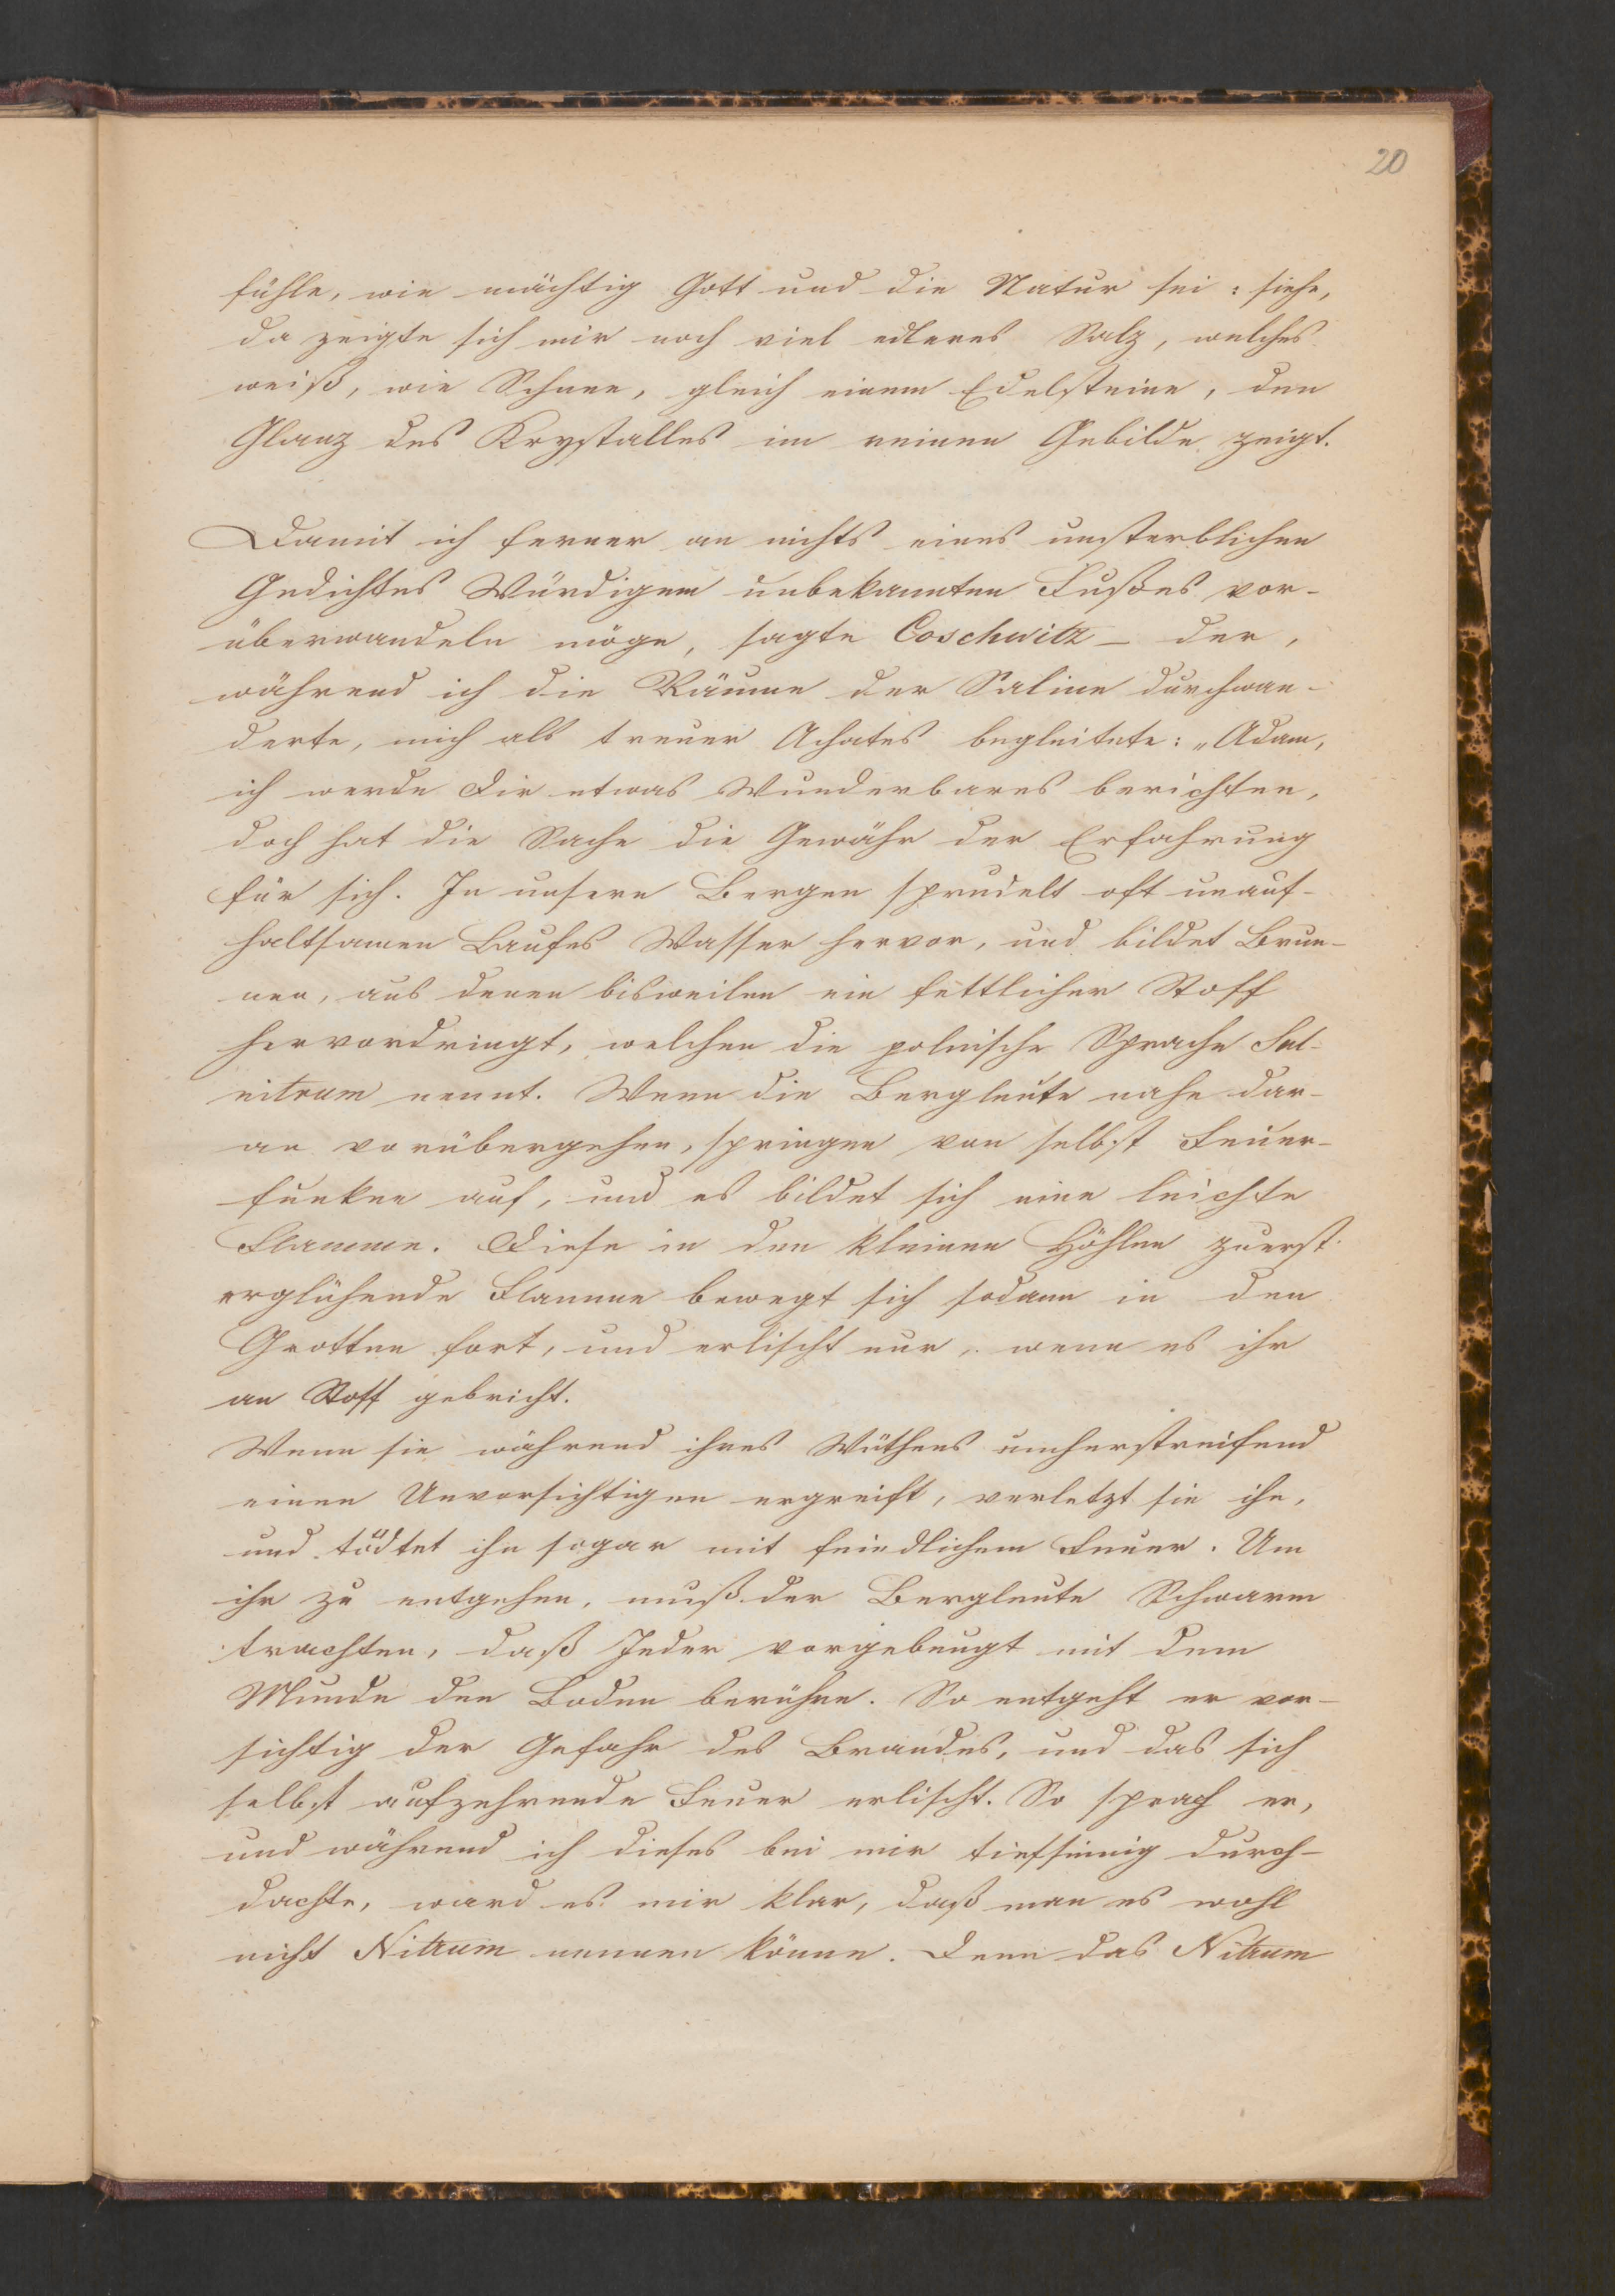 20
fühle, wie mächtig Gott und die Natur sei: siehe,
da zeigte sich mir noch viel edleres Salz, welches
weiß, wie Schnee, gleich einem Edelsteine, den
Glanz des Krystalles im reinen Gebilde zeigt.
Damit ich ferner an nichts eines unsterblichen
Gedichtes Würdigem unbekannten Fußes vor-
überwandeln möge, sagte Coschwitz – der,
während ich die Räume der Saline durchwan-
derte, mich als treuer Achates begleitete: „Adam,
ich werde Dir etwas Wunderbares berichten,
doch hat die Sache die Gewähr der Erfahrung
für sich. In unsern Bergen sprudelt oft unauf-
haltsamen Laufes Wasser hervor, und bildet Brun-
nen, aus denen bisweilen ein fettlicher Stoff
hervordringt, welchen die polnische Sprache Sal-
nitrum nennt. Wenn die Bergleute nahe dar-
an vorübergehen, springen von selbst Feuer-
funken auf, und es bildet sich eine leichte
Flamme. Diese in den kleinen Höhlen zuerst
erglühende Flamme bewegt sich sodann in den
Grotten fort, und erlischt nur, wenn es ihr
an Stoff gebricht.
Wenn sie während ihres Wüthens umherstreifend
einen Unvorsichtigen ergreift, verletzt sie ihn,
und tödtet ihn sogar mit feindlichem Feuer. Um
ihr zu entgehen, muß der Bergleute Schwarm
trachten, daß Jeder vorgebeugt mit dem
Munde den Boden berühre. So entgeht er vor-
sichtig der Gefahr des Brandes, und das sich
selbst aufzehrende Feuer erlischt. So sprach er,
und während ich dieses bei mir tiefsinnig durch-
dachte, ward es mir klar, daß man es wohl
nicht Nitrum nennen könne. Denn das Nitrum